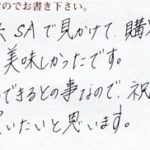 のでお書き下さい。
SAで見かけて、購
美味しかったです。
できるとの事なので、祝
いたいと思います。